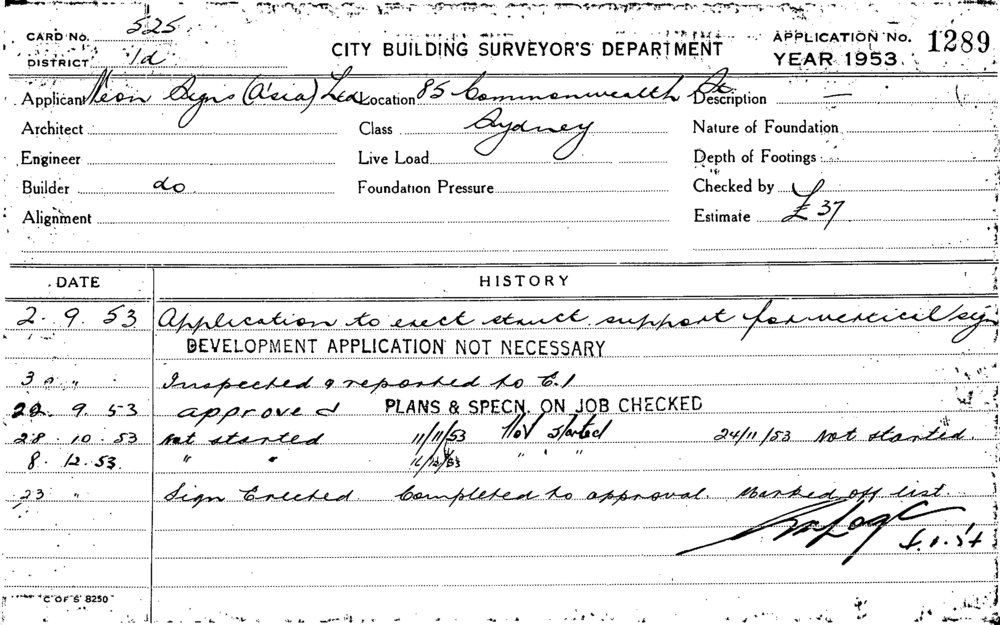 CARD NO. 525
CITY BUILDING SURVEYOR'S DEPARTMENT
APPLICATION NO. 1289
DISTRICT 1d
YEAR 1953
Applicant Neon Signs (A'sia) Ltd Location 85 Commonwealth St. Description —
Architect Class Sydney Nature of Foundation
Engineer Live Load Depth of Footings
Builder do Foundation Pressure Checked by
Alignment Estimate £37
DATE HISTORY
2. 9. 53 Application to erect struct. support for vertical sign
DEVELOPMENT APPLICATION NOT NECESSARY
3 " " Inspected & reported to C.I
22. 9. 53 approved PLANS & SPECN. ON JOB CHECKED
28. 10. 53 Not started 11/11/53 Not started 24/11/53 Not started.
8. 12. 53. " " " " "
23 " Sign Erected Completed to approval. Marked off list.
C OF S 8250